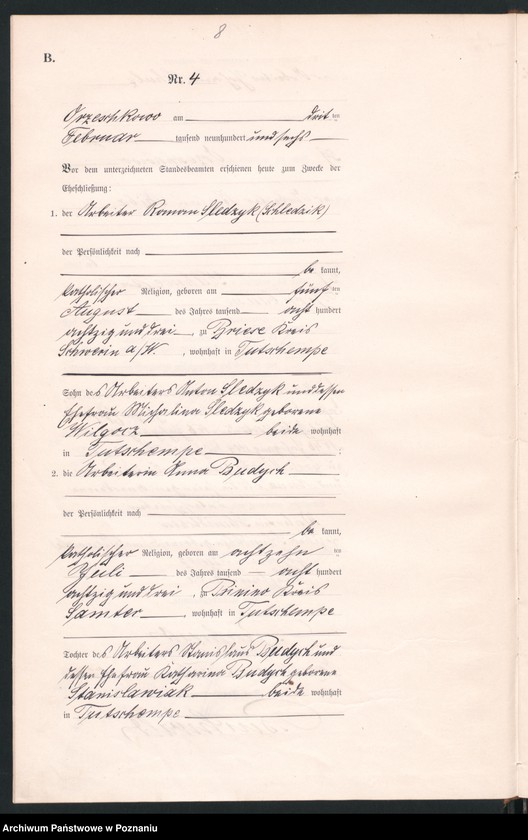 8
B.
Nr. 4
Orzeschkowo am dritten
Februar tausend neunhundert und sechs
Vor dem unterzeichneten Standesbeamten erschienen heute zum Zwecke der
Eheschließung:
1. der Arbeiter Roman Sledzyk (Schledzik)
der Persönlichkeit nach
be kannt,
katholischer Religion, geboren am fünften
August des Jahres tausend acht hundert
achtzig und drei, zu Briese Kreis
Schwerin a/W., wohnhaft in Tutschempe
Sohn des Arbeiters Anton Sledzyk und dessen
Ehefrau Michalina Sledzyk geborene
Wilgosz beide wohnhaft
in Tutschempe;
2. die Arbeiterin Anna Budych
der Persönlichkeit nach
be kannt,
katholischer Religion, geboren am achtzehn ten
Juli des Jahres tausend acht hundert
achtzig und drei, zu Kreis
Samter, wohnhaft in Tutschempe
Tochter des Arbeiters Stanislaus Budych und
dessen Ehefrau Katharina Budych geborene
Stanislawiak beide wohnhaft
in Tutschempe
Archiwum Państwowe w Poznaniu